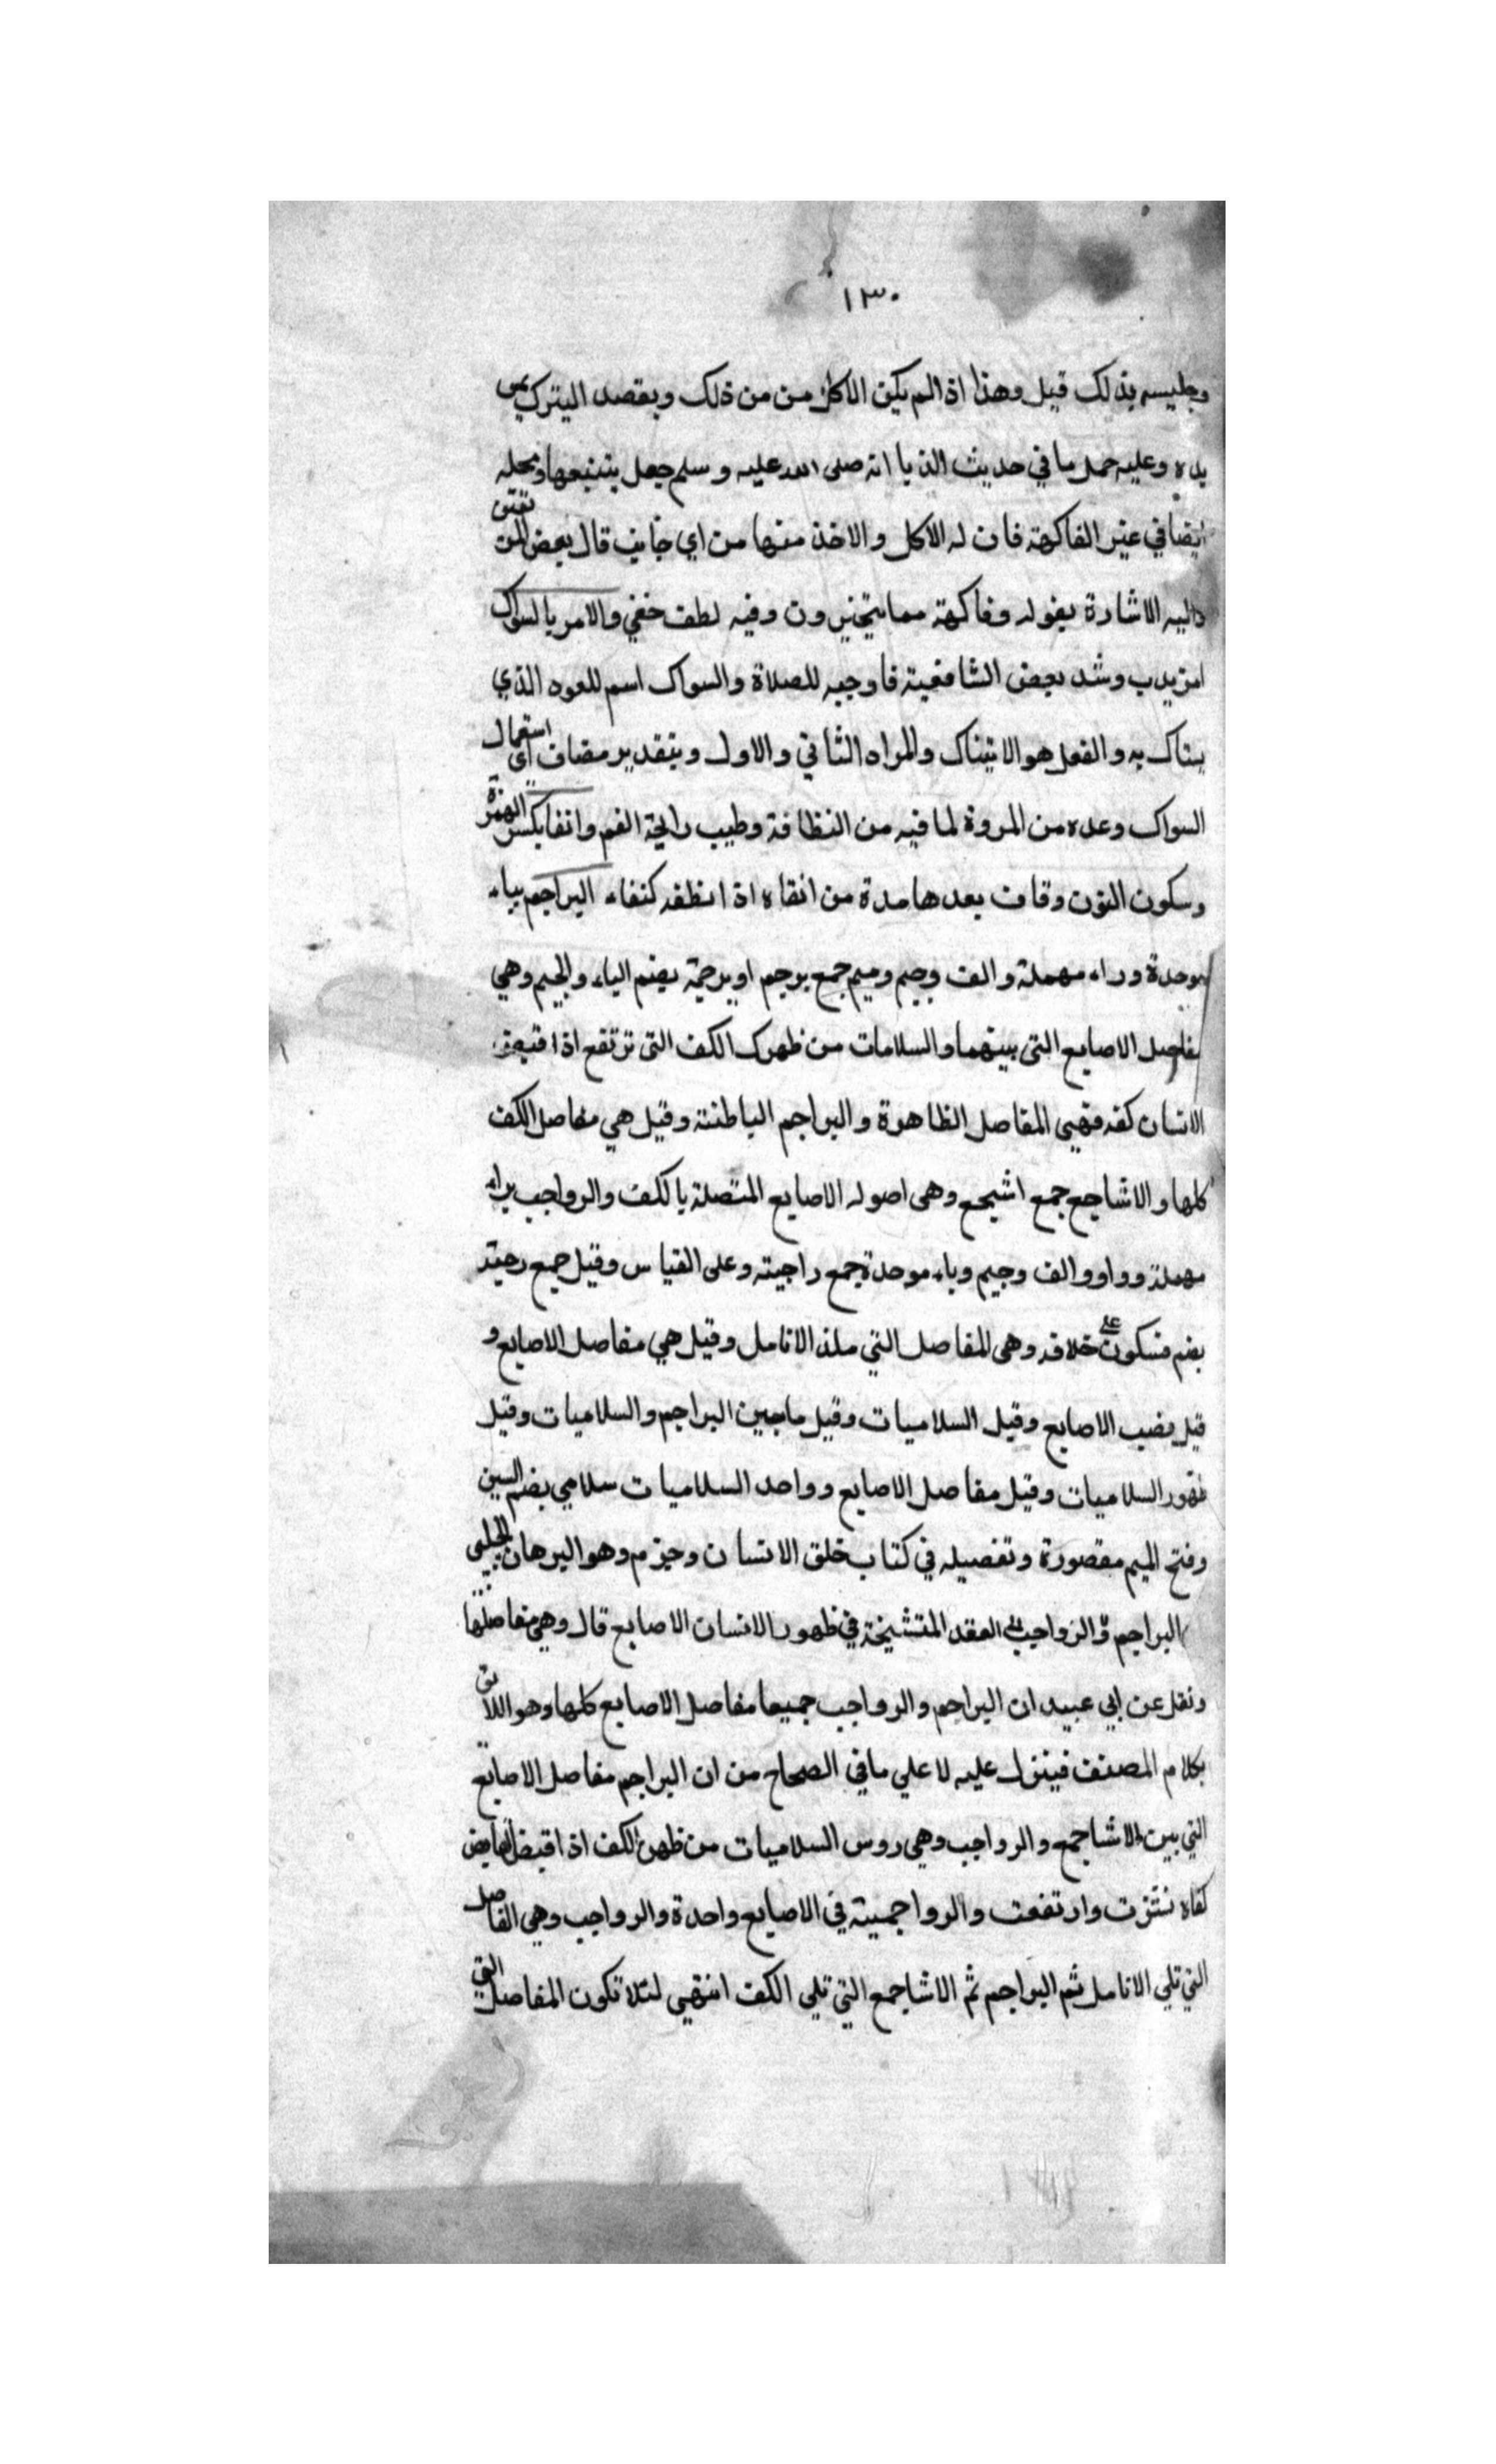 ١٣٠
وجليسه بذلك قيل وهذا اذا لم يكن الاكل من من ذلك ويقصد التبرك بمس
يده وعليه حمل ما في حديث الدبا انه صلى الله عليه وسلم جعل يتتبعها ومحله
ايضا في غير الفاكهة فان له الاكل والاخذ منها من اي جانب قال بعض المتقين
واليه الاشارة بقوله وفاكهة مما يتخيرون وفيه لطف خفي والامر بالسواك
امر ندب وشد بعض الشافعية فاوجبه للصلاة والسواك اسم للعود الذي
يستاك به والفعل هو الاستياك والمراد الثاني والاول وبتقدير مضاف اى استعمال
السواك وعده من المروة لما فيه من النظافة وطيب رايحة الفم وانقا بكسر الهمزة
وسكون النون وقاف بعدها مدة من انقاه اذا نظفه كنفاء البراجم بباء
موحدة وراء مهملة والف وجيم وميم جمع برجم او برجمة بضم الباء والجيم وهي
مفاصل الاصابع التى بينهما والسلامات من ظهرك الكف التى ترتفع اذا قبض
الانسان كفه فهي المفاصل الظاهرة والبراجم الباطنة وقيل هي مفاصل الكف
كلها والاشاجع جمع اشجع وهى اصول الاصابع المتصلة بالكف والرواجب براء
مهملة وواو والف وجيم وباء موحدة جمع راجبته وعلى القياس وقيل جمع رجبة
بضم فسكون على خلافه وهى المفاصل التي ملذ الانامل وقيل هي مفاصل الاصابع و
قيل قضيب الاصابع وقيل السلاميات وقيل ما بين البراجم والسلاميات وقيل
ظهور السلاميات وقيل مفاصل الاصابع وواحد السلاميات سلامي بضم السين
وفتح الميم مقصورة وتفصيله في كتاب خلق الانسان وجزم وهو البرهان الحلبي
البراجم والرواجب العقد المتشنجة في ظهور الانسان الاصابع قال وهي مفاصلها
ونقل عن ابي عبيد ان البراجم والرواجب جميعا مفاصل الاصابع كلها وهو اللائق
بكلام المصنف فينزل عليه لا علي مافي الصحاح من ان البراجم مفاصل الاصابع
التي بين الاشاجع والرواجب وهي روس السلاميات من ظهر الكف اذا قبض القابض
كفاه نشزت وارتفعت والرواجميته في الاصابع واحدة والرواجب وهي المفاصل
التي تلي الانامل ثم البراجم ثم الاشاجع التي تلى الكف انتهي لئلا تكون المفاصل التي